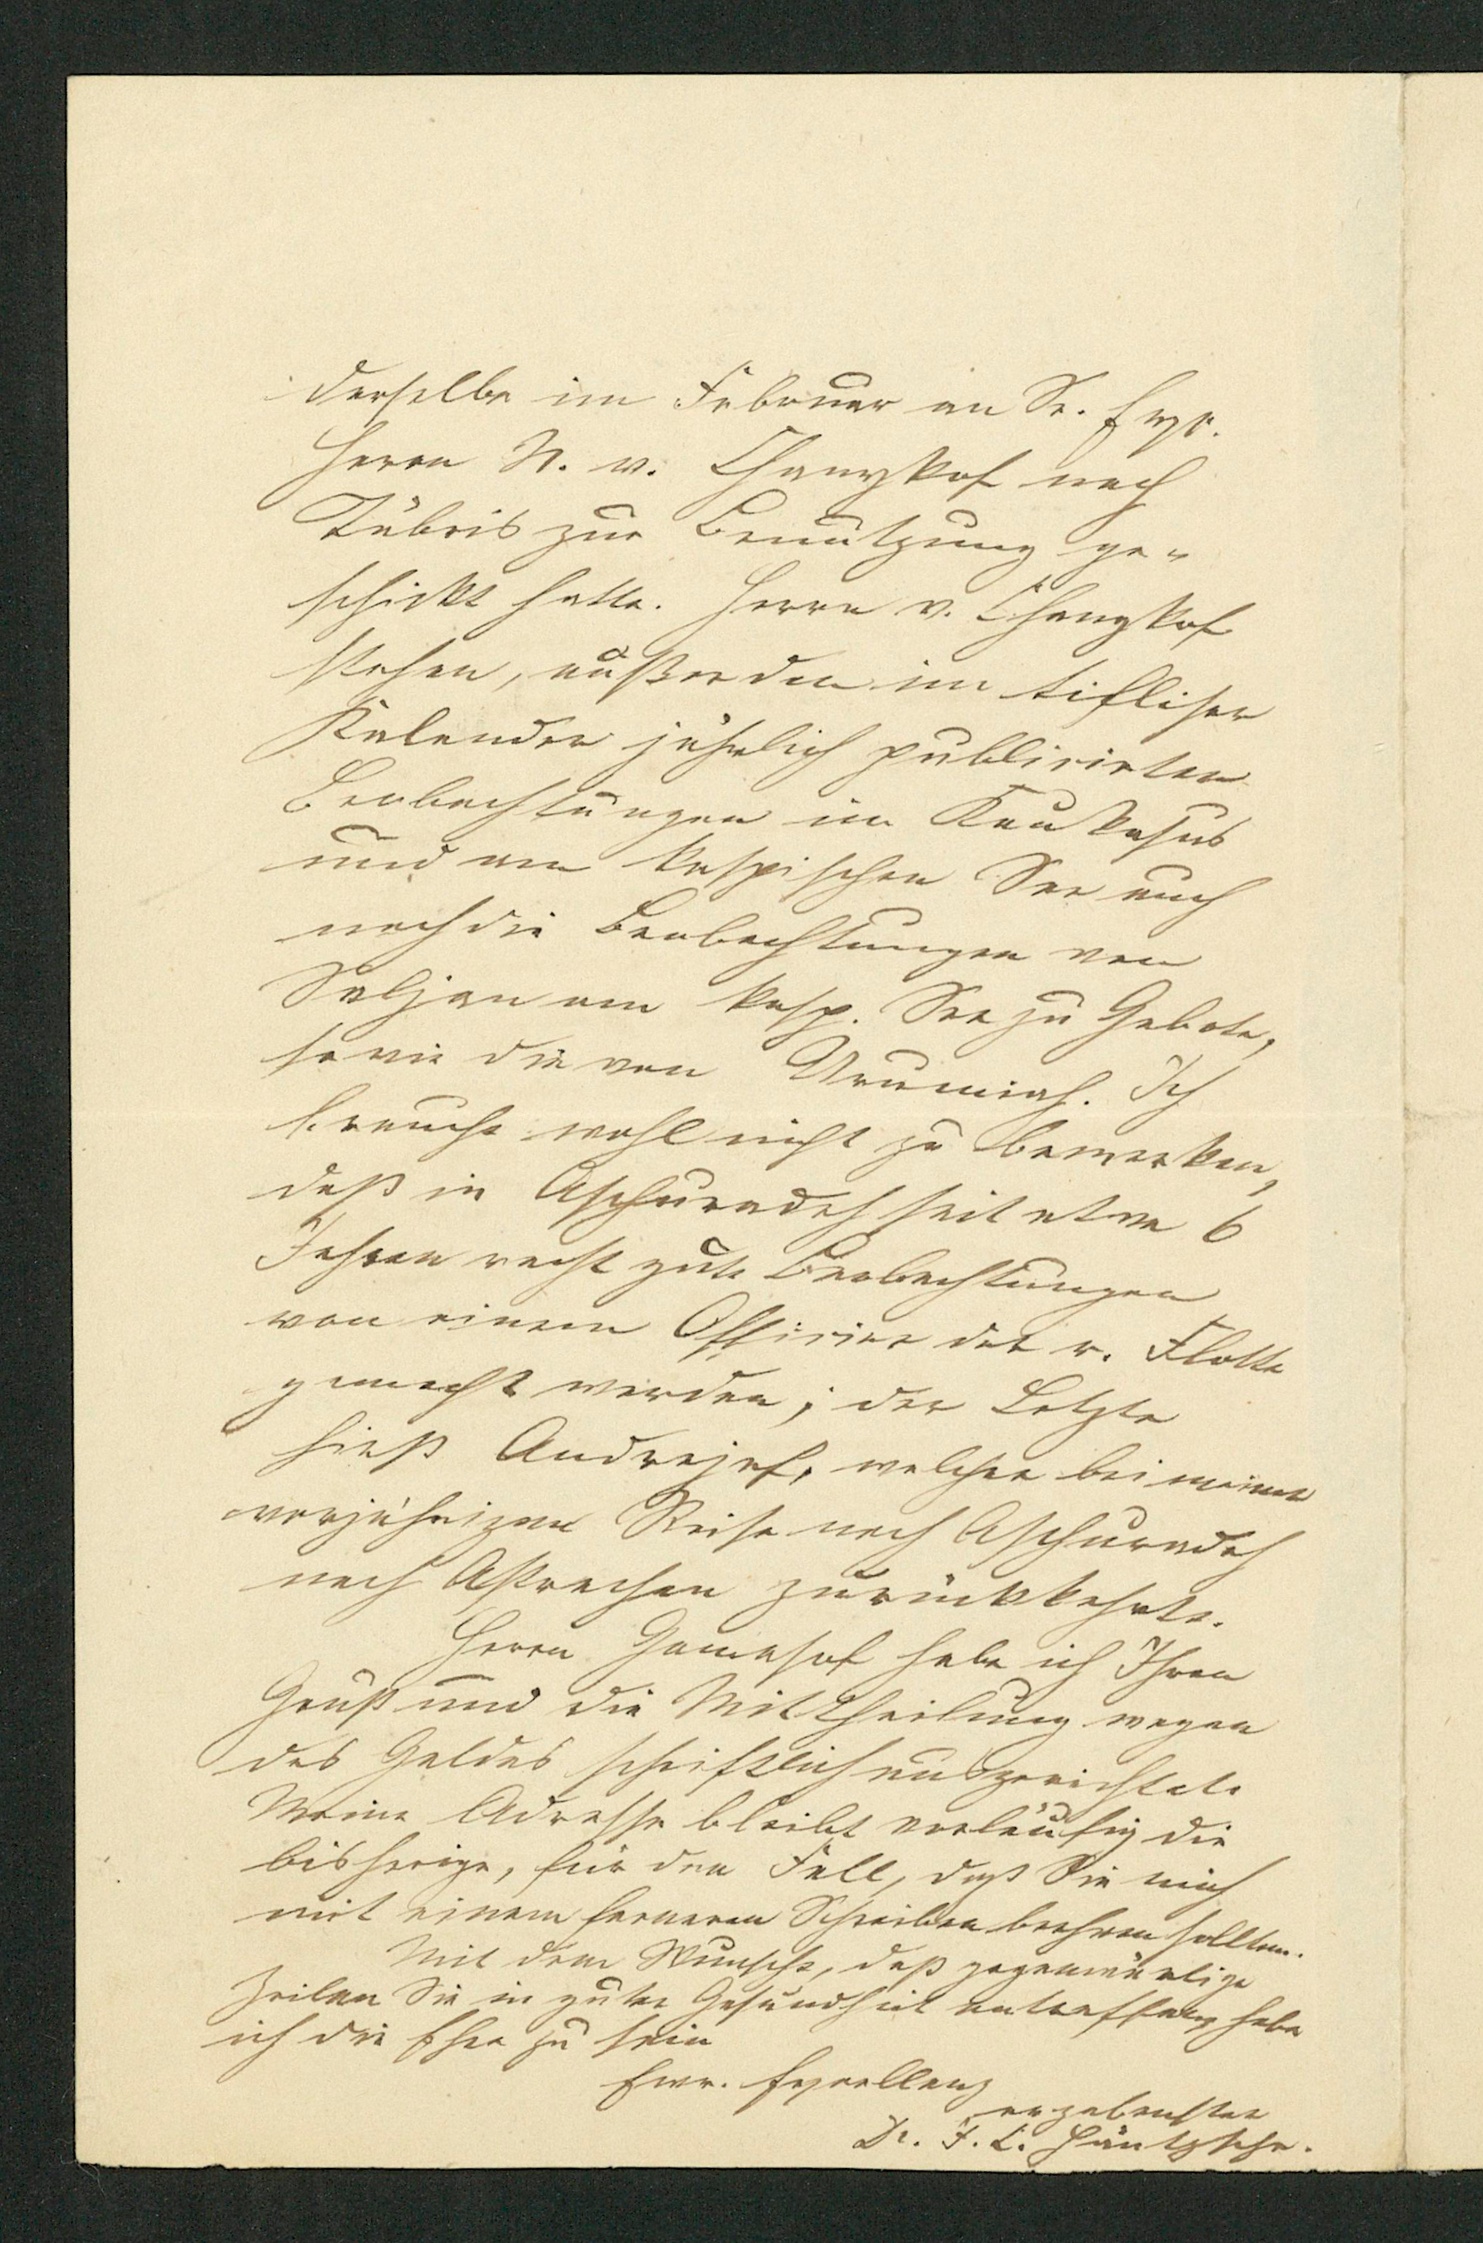 derselbe im Februar an Se. Exc.
Herrn N. v. Chanykof nach
Täbris zur Benutzung ge-
schickt hatte. Herrn v. Chanykof
stehen, außer den im tifliser
Kalender jährlich publicirten
Beobachtungen im Kaukasus
und am kaspischen See auch
noch die Beobachtungen von
Saljan am kasp. See zu Gebote,
sowie die von Urumiah. Ich
brauche wohl nicht zu bemerken,
daß in Aschuradeh seit etwa 6
Jahren recht gute Beobachtungen
von einem Officier der r. Flotte
gemacht werden; der Letzte
hieß Andrejef, welcher bei meiner
vorjährigen Reise nach Aschuradeh
nach Astrachan zurückkehrte.
Herrn Gamasof habe ich Ihren
Gruß und die Mittheilung wegen
des Geldes schriftlich ausgerichtet.
Meine Adresse bleibt vorläufig die
bisherige, für den Fall, daß Sie mich
mit einem ferneren Schreiben beehren sollten.
Mit dem Wunsche, daß gegenwärtige
Zeilen Sie in guter Gesundheit antreffen, habe
ich die Ehre zu sein
Ew. Excellenz
ergebenster
Dr. J. C. Häntzsche.